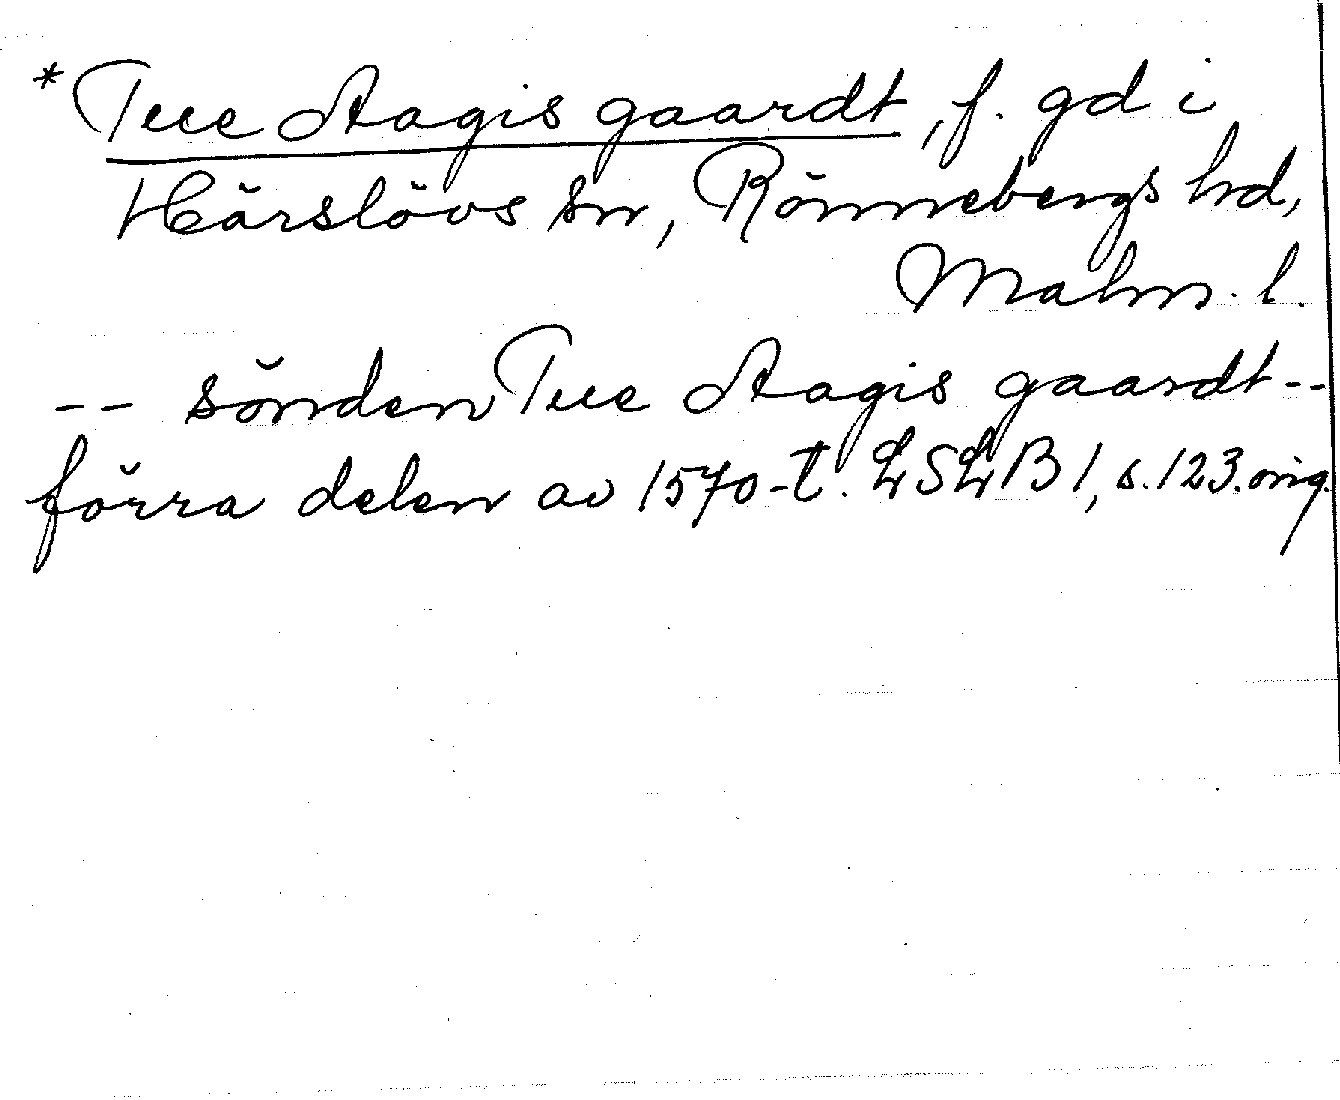 * Tue Aagis gaardt, f. gd i
Härslövs sn, Rönnebergs hd,
Malm. l.
-- sönden Tue Aagis gaardt --
förra delen av 1570-t. LSLB 1, s. 123. orig.